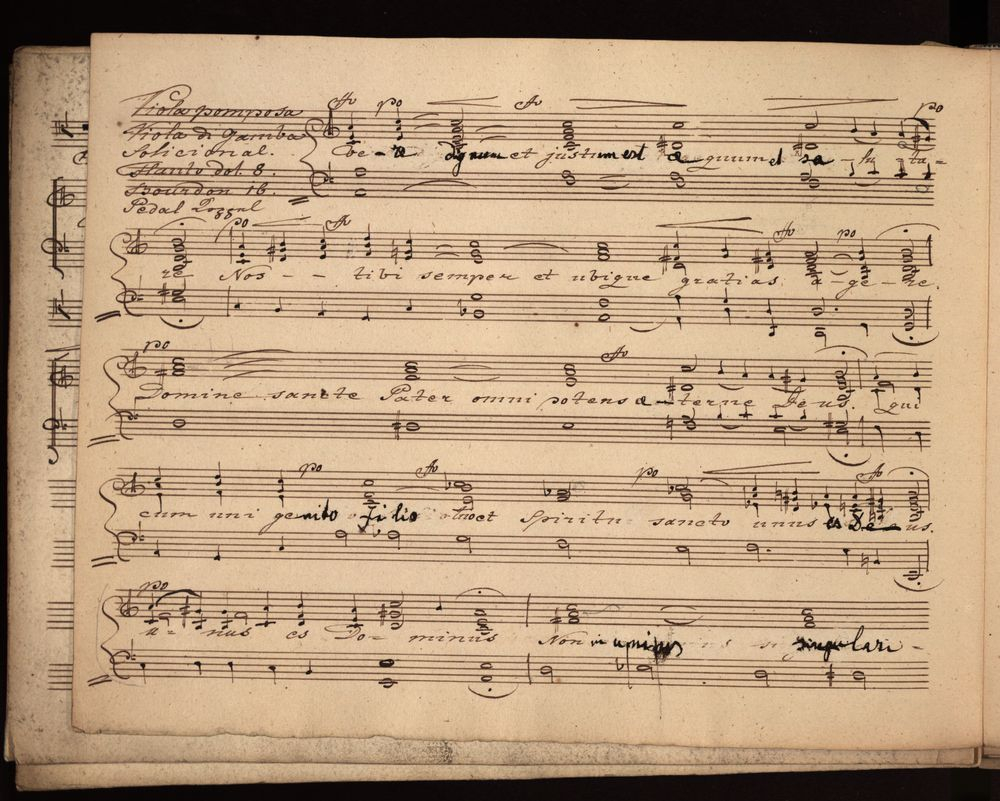 Viola pomposa
Viola di Gamba
Solicional.
Flauto dol. 8.
Bourdon 16.
Pedal
po po
Ve - re dignum et justum est æquum et sa - lu - ta -
po po
re Nos - - tibi semper et ubique gratias a - ge - re.
po
Domine sancte Pater omni potens æ - terne Deus. Qui
po po
cum uni genito Filio et Spiritu sancto unus es De - us
po
u - nus es Do - minus Non in unius singulari -